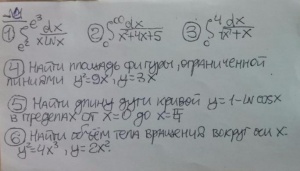 ① ∫_{e²}^{e³} dx/(x ln x) ② ∫_0^∞ dx/(x²+4x+5) ③ ∫_0^4 dx/(√x+x)
④ Найти площадь фигуры, ограниченной
линиями y²=9x, y=3x
⑤ Найти длину дуги кривой y=1-ln cosx
в пределах от x=0 до x=π/4
⑥ Найти объём тела вращения вокруг оси x.
y²=4x³, y=2x²